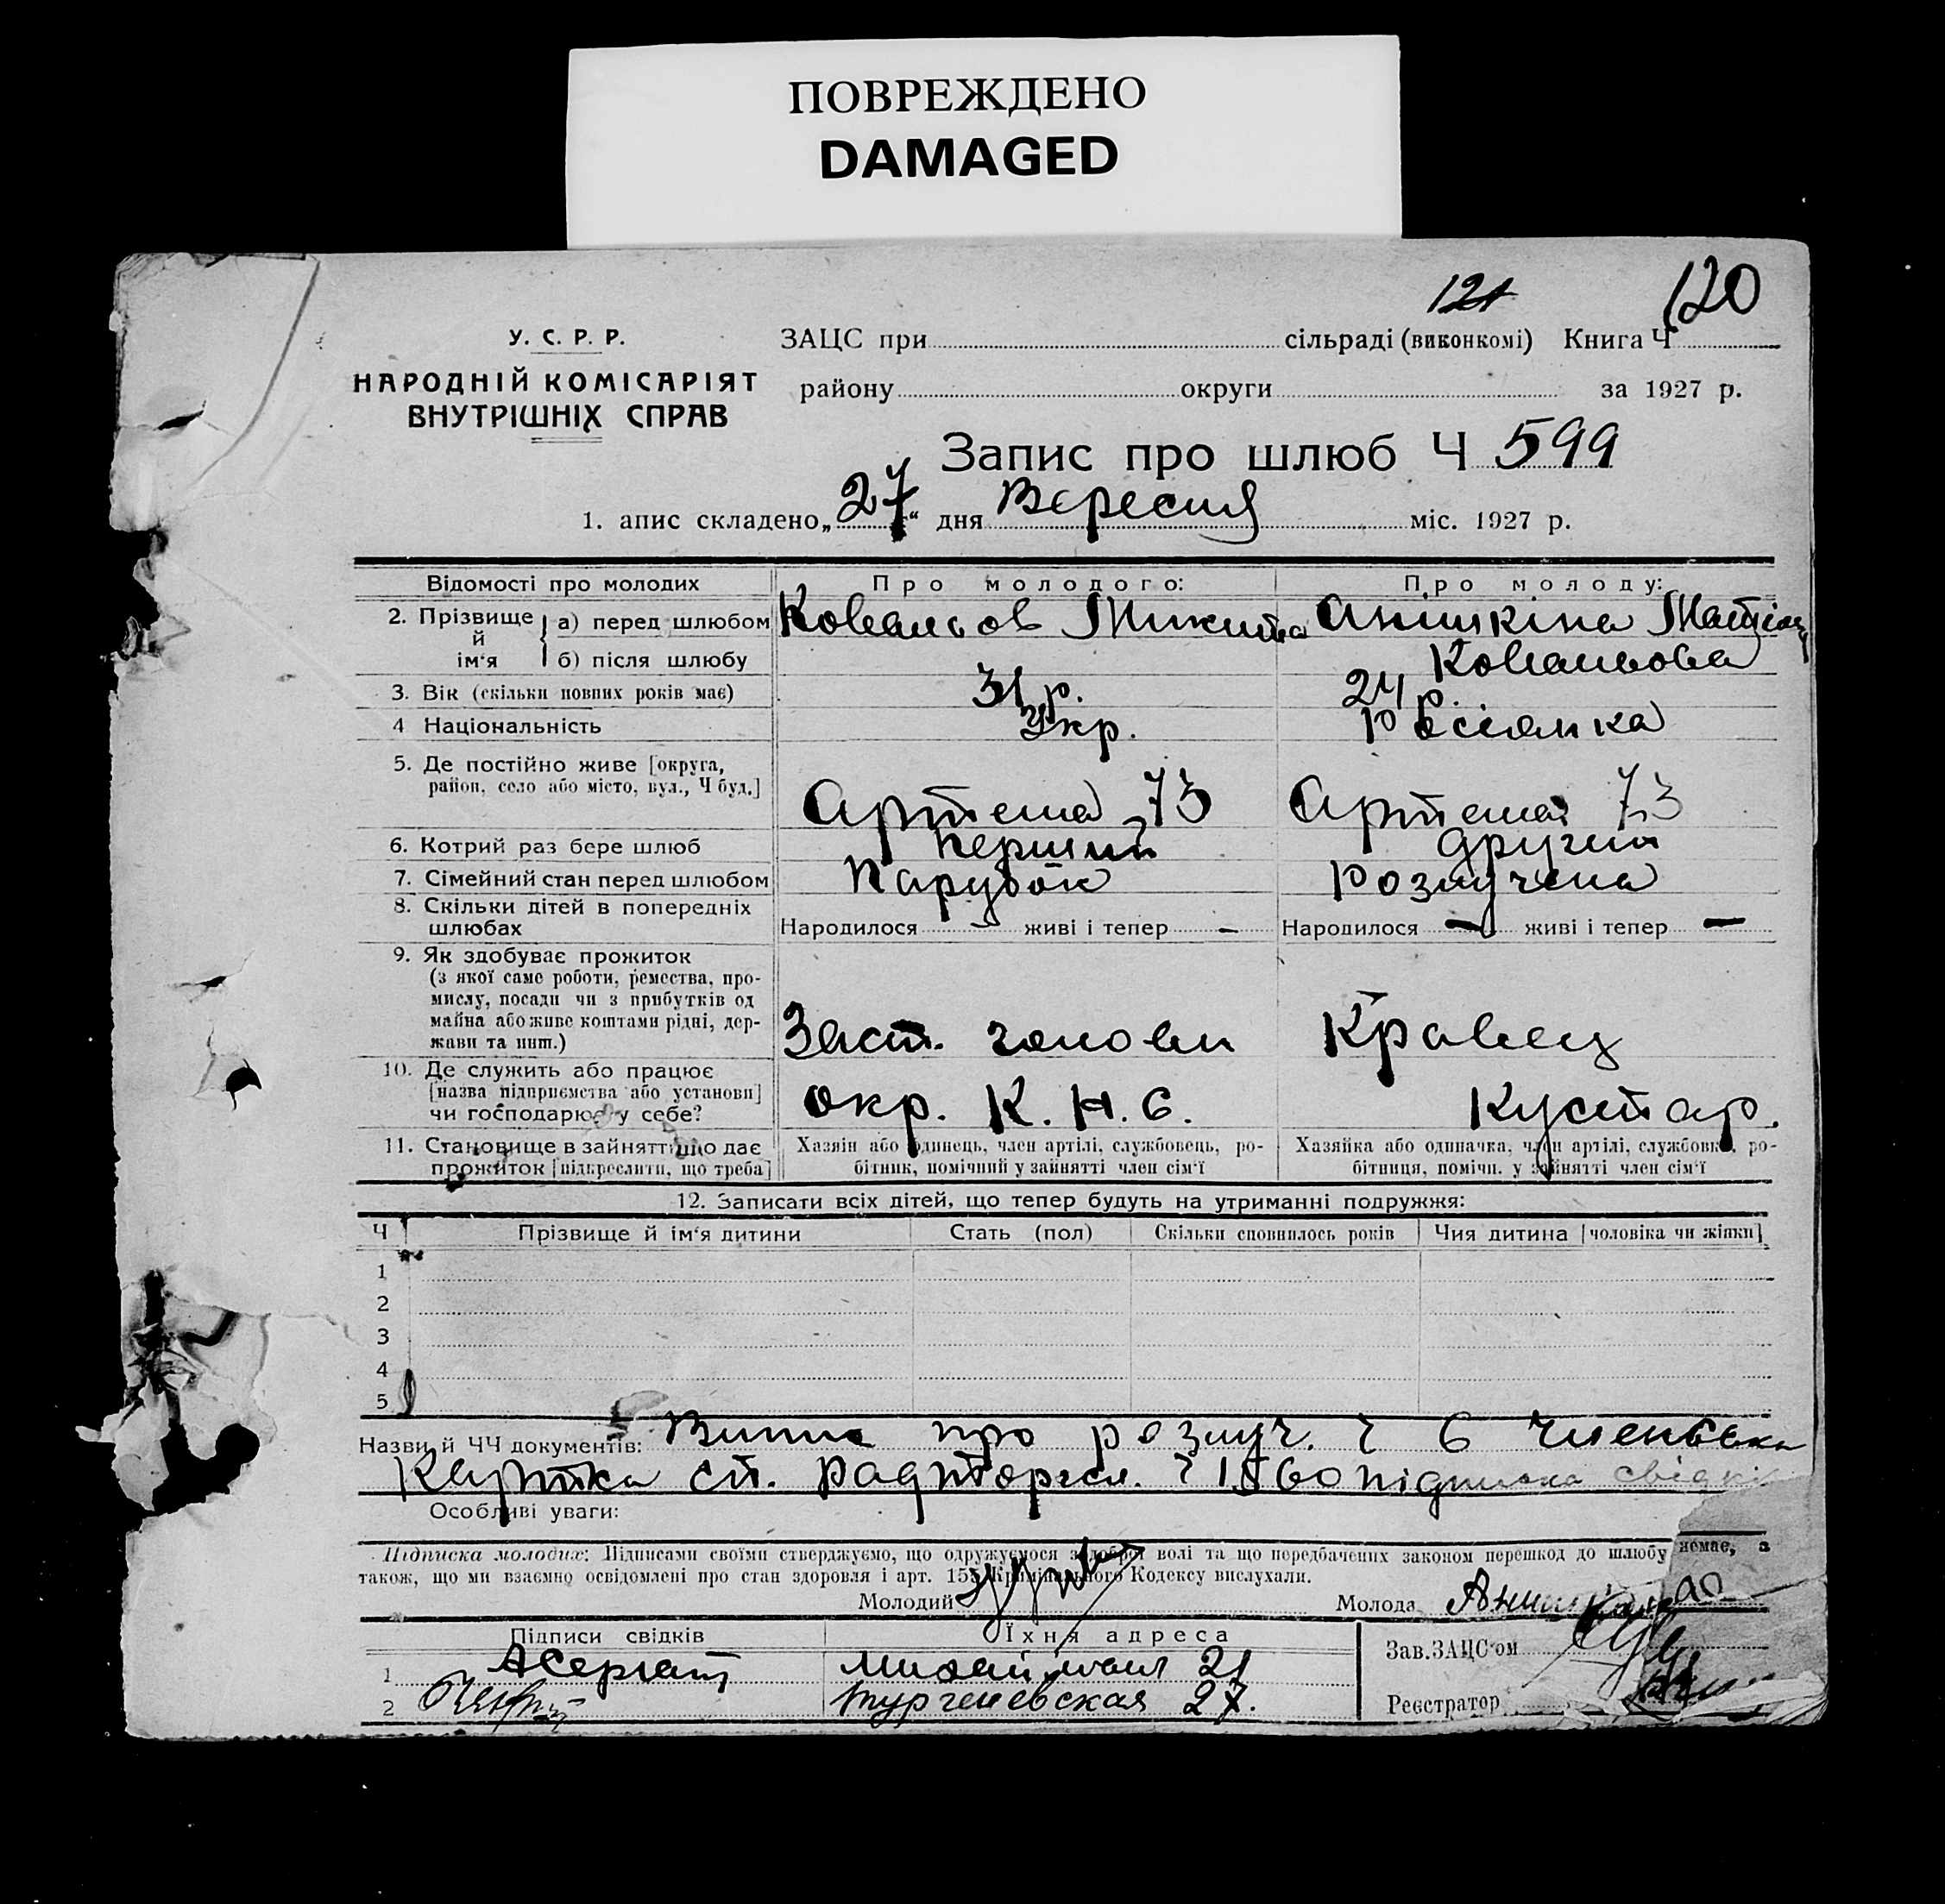 ПОВРЕЖДЕНО
DAMAGED
121 120
У. С. Р. Р.
НАРОДНІЙ КОМІСАРІЯТ
ВНУТРІШНІХ СПРАВ
ЗАЦС при сільраді (виконкомі) Книга Ч
району округи за 1927 р.
Запис про шлюб Ч 599
1. апис складено „27“ дня Вересня міс. 1927 р.
Відомості про молодих Про молодого: Про молоду:
2. Прізвище й ім'я а) перед шлюбом Ковальов Микита Анішкіна
б) після шлюбу Ковальова
3. Вік (скільки повних років має) 31 р. 24 р.
4 Національність Укр. Росіянка
5. Де постійно живе [округа,
район, село або місто, вул., Ч буд.] Артема 73 Артема 73
6. Котрий раз бере шлюб Перший Другий
7. Сімейний стан перед шлюбом Парубок Розлучена
8. Скільки дітей в попередніх
шлюбах Народилося - живі і тепер - Народилося - живі і тепер -
9. Як здобуває прожиток
(з якої саме роботи, ремества, про-
мислу, посади чи з прибутків од
майна або живе коштами рідні, дер-
жави та инш.) Заст. голови Кравец
10. Де служить або працює
[назва підприємства або установи]
чи господарює у себе? окр. К. Н. С. Кустар.
11. Становище в зайнятті що дає
прожиток [підкреслити, що треба]
Хазяін або одинець, член артілі, службовець, ро-
бітник, помічний у зайнятті член сім'ї
Хазяйка або одиначка, член артілі, службовка, ро-
бітниця, помічн. у зайнятті член сім'ї
12. Записати всіх дітей, що тепер будуть на утриманні подружжя:
Ч Прізвище й ім'я дитини Стать (пол) Скільки сповнилось років Чия дитина [чоловіка чи жінки]
1
2
3
4
5
Назви й ЧЧ документів: Витяг про розлуч. Ч 6 Членська
Картка сп. Радторгсл. Ч 1560 підписка свідків
Особливі уваги:
Підписка молодих: Підписами своїми стверджуємо, що одружуємося з доброї волі та що передбачених законом перешкод до шлюбу немає, а
також, що ми взаємно освідомлені про стан здоровля і арт. 155 Кримінального Кодексу вислухали.
Молодий Молода
Підписи свідків Їхня адреса
1 21
2 Тургеневская 27.
Зав. ЗАЦС'ом
Реєстратор